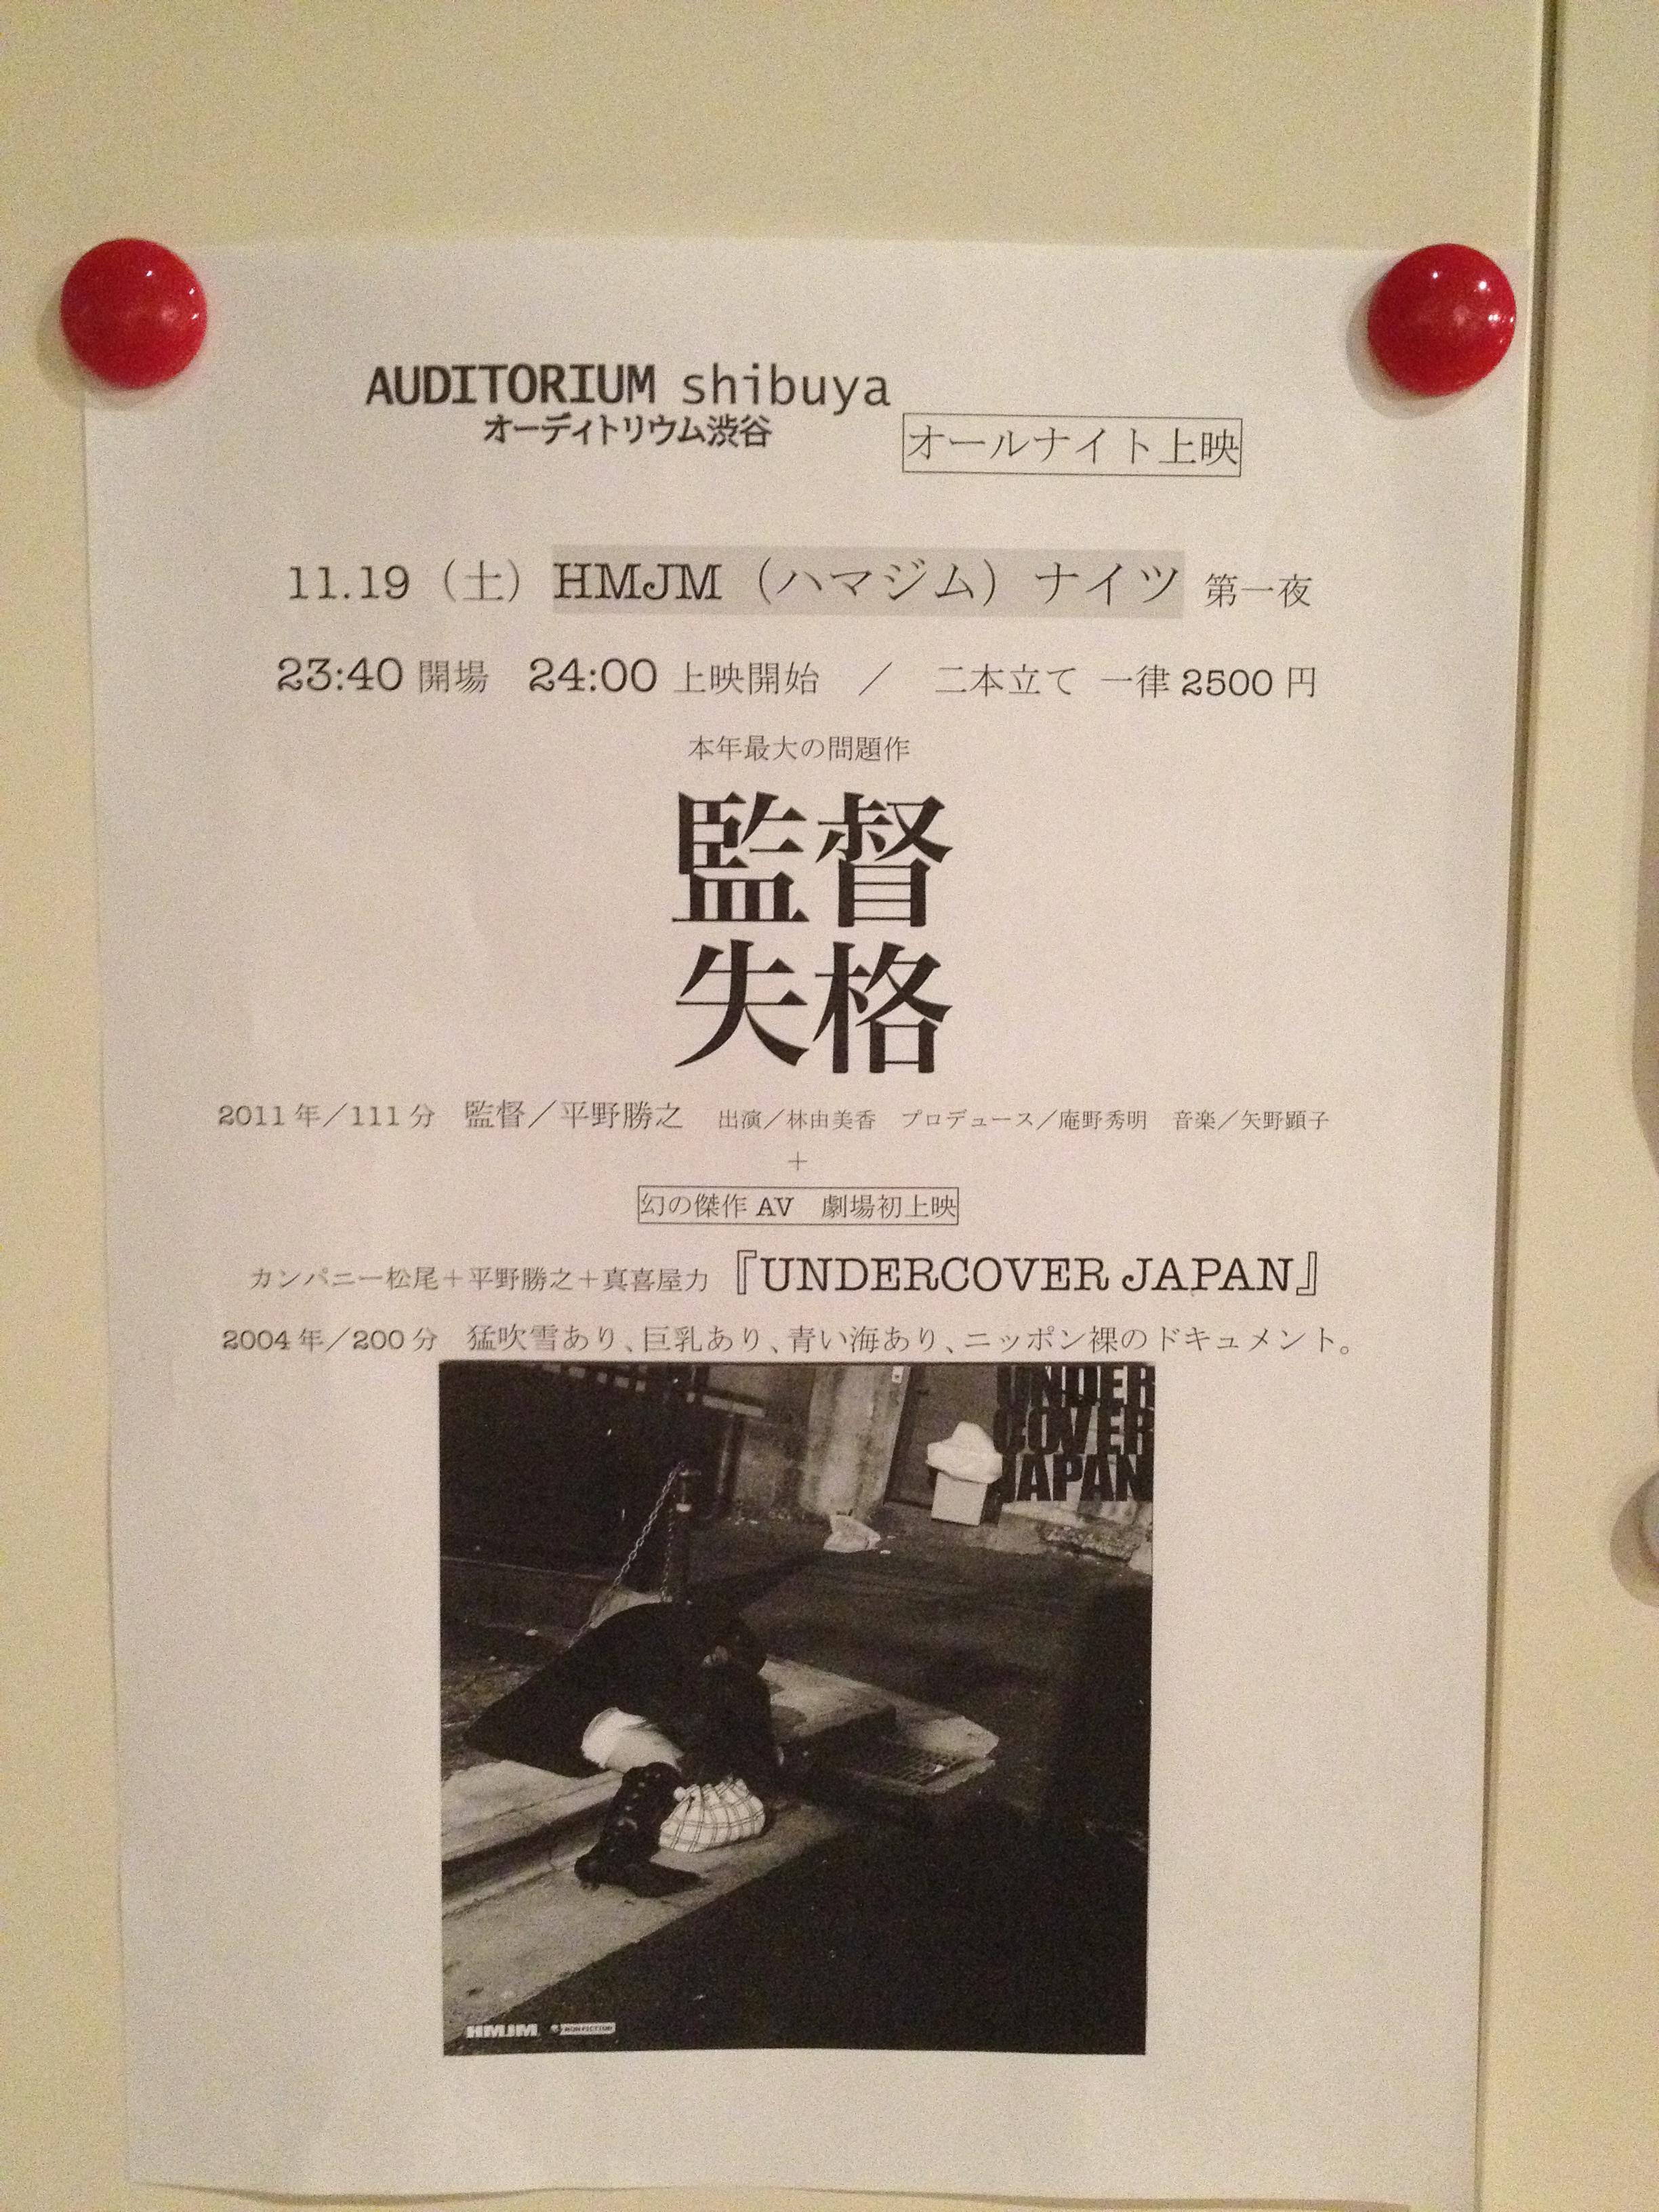 AUDITORIUM shibuya
オーディトリウム渋谷
オールナイト上映
11.19（土）HMJM（ハマジム）ナイツ 第一夜
23:40 開場　24:00 上映開始　／　二本立て 一律 2500 円
本年最大の問題作
監督
失格
2011 年／111 分　監督／平野勝之　出演／林由美香　プロデュース／庵野秀明　音楽／矢野顕子
＋
幻の傑作 AV　劇場初上映
カンパニー松尾＋平野勝之＋真喜屋力『UNDERCOVER JAPAN』
2004 年／200 分　猛吹雪あり、巨乳あり、青い海あり、ニッポン裸のドキュメント。
UNDER
COVER
JAPAN
HMJM NONFICTION